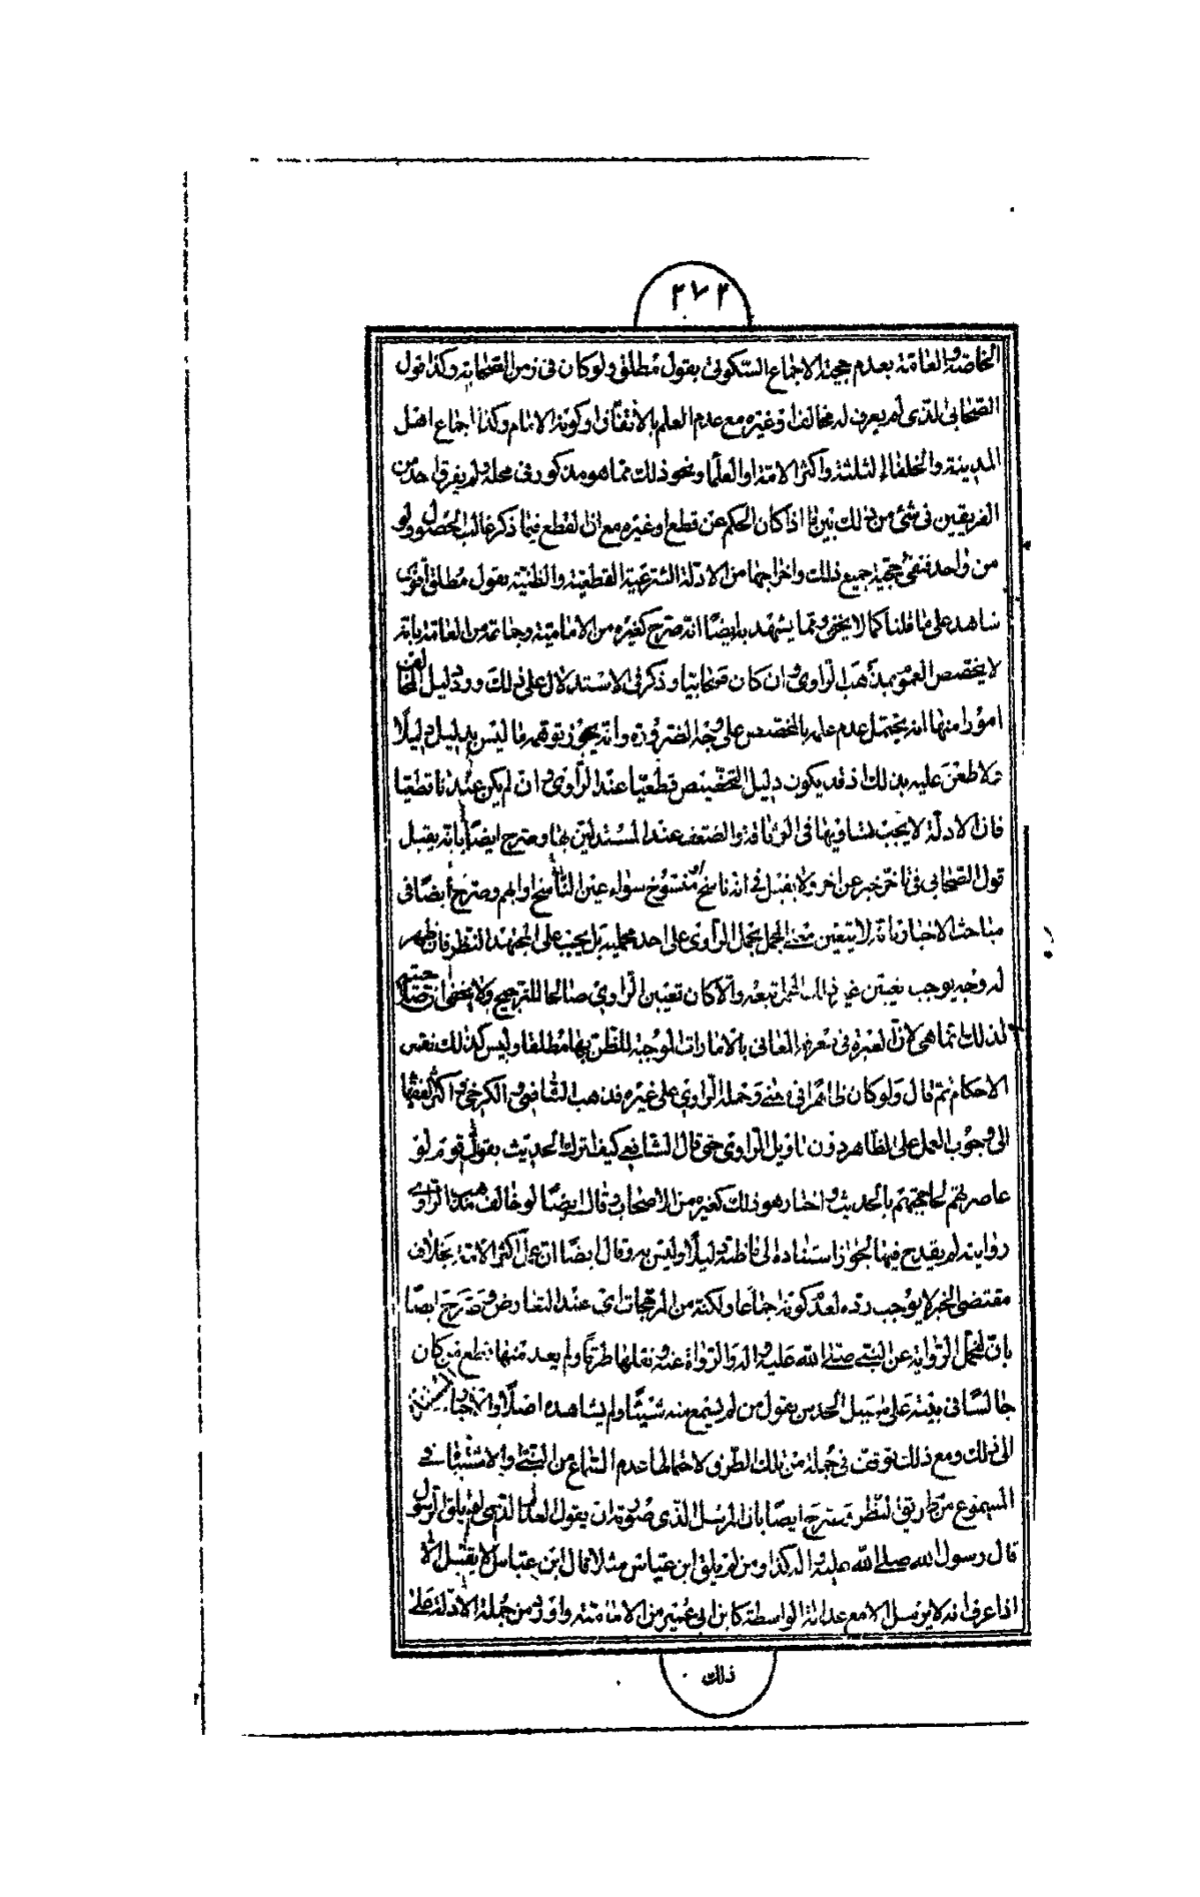 ٢٧٢
الخاصة والعامة بعدم حجية الاجماع السكوتى بقول مطلق ولو كان فى زمن الصحابة وكذا قول
الصحابى الذى لم يعرف له مخالف او غيره مع عدم العلم بالاتفاق او كونه الامام وكذا اجماع اهل
المدينة والخلفاء الثلثة واكثر الامة او العلما ونحو ذلك مما هو مذكور فى محله ولم يفرق احد من
الفريقين فى شئ من ذلك بين ما اذا كان الحكم عن قطع او غيره مع ان القطع فيما ذكر غالب الحصول ولو
من واحد فنفى حجية جميع ذلك واخراجها من الادلة الشرعية القطعية والظنية بقول مطلق اقوى
شاهد على ما قلنا كما لا يخفى ومما يشهد به ايضا انه صرح كغيره من الامامية وجماعة من العامة بانه
لا يخصص العموم بمذهب الراوى وان كان صحابيا وذكر فى الاستدلال على ذلك ورد دليل المخالفين
امورا منها انه يحتمل عدم علمه بالمخصص على وجه الضرورة وانه يجوز توهمه ما ليس بدليل دليلا
فلا طعن عليه بذلك اذ قد يكون دليل التخصيص قطعيا عند الراوى وان لم يكن عندنا قطعيا
فان الادلة لا يجب تساويها فى الوثاقة والضعف عند المستدلين بها وصرح ايضا بانه يقبل
قول الصحابى فى تاخر خبر عن اخر ولا يقبل فى انه ناسخ او منسوخ سواء عين الناسخ او ابهم وصرح ايضا فى
مباحث الاخبار بانه لا يتعين معنى المجمل بحمل الراوى على احد محمليه بل يجب على المجتهد النظر فان ظهر
له وجه يوجب تعيين غير ذلك الحمل تبعه والا كان تعيين الراوى صالحا للترجيح ولا يخفى ان صلاحيته
لذلك مما هى لان العبرة فى معرفة المعانى بالامارات الموجبة للظن بها مطلقا وليس كذلك نفس
الاحكام ثم قال ولو كان ظاهرا فى معنى وحمله الراوى على غيره فذهب الشافعى والكرخى واكثر الفقها
الى وجوب العمل على الظاهر دون تاويل الراوى حتى قال الشافعى كيف اترك الحديث بقول قوم لو
عاصرتهم لحاججتهم بالحديث واختار هو ذلك كغيره من الاصحاب وقال ايضا لو خالف مذهب الراوى
روايته لم يقدح فيها لجواز استناده الى ما ظنه دليلا وليس به وقال ايضا ان عمل اكثر الامة بخلاف
مقتضى الخبر لا يوجب رده لعدم كونه اجماعا ولكنه من المرجحات اى عند التعارض وصرح ايضا
بان لتحمل الرواية عن النبى صلى الله عليه واله والرواة عنه ونقلها طرقا ولم يعد منها قطع من كان
جالسا فى بيته على سبيل الحدس بقول من لم يسمع منه شيئا ولم يشاهده اصلا
الى ذلك ومع ذلك توقف فى جملة من تلك الطرق لاحتمالها عدم السماع من النبى والاشتباه فى
المسموع من طريق النظر وصرح ايضا بان المرسل الذى صورته ان يقول العدل الذى لم يلق الرسول
قال رسول الله صلى الله عليه واله كذا ومن لم يلق ابن عباس مثلا قال ابن عباس لا يقبل الا
اذا عرف انه لا يرسل الا مع عدالة الواسطة كابن ابى عمير من الامامية واورد من جملة الادلة على
ذلك